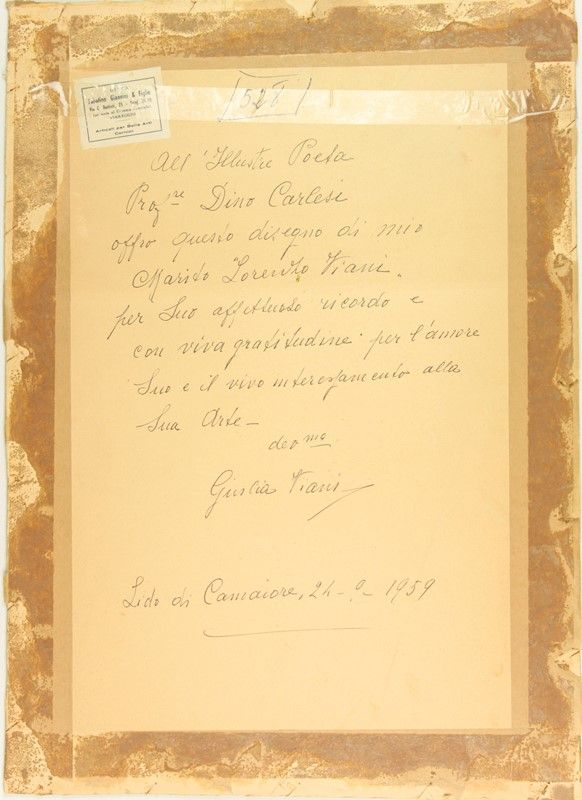 Giannini & Figlio
VIAREGGIO
Articoli per Belle Arti
Cornici
528
All'Illustre Poeta
Prof.re Dino Carlesi
offro questo disegno di mio
Marito Lorenzo Viani.
per Suo affettuoso ricordo e
con viva gratitudine per l'amore
Suo e il vivo interessamento alla
Sua Arte -
dev ma
Giulia Viani
Lido di Camaiore, 1959